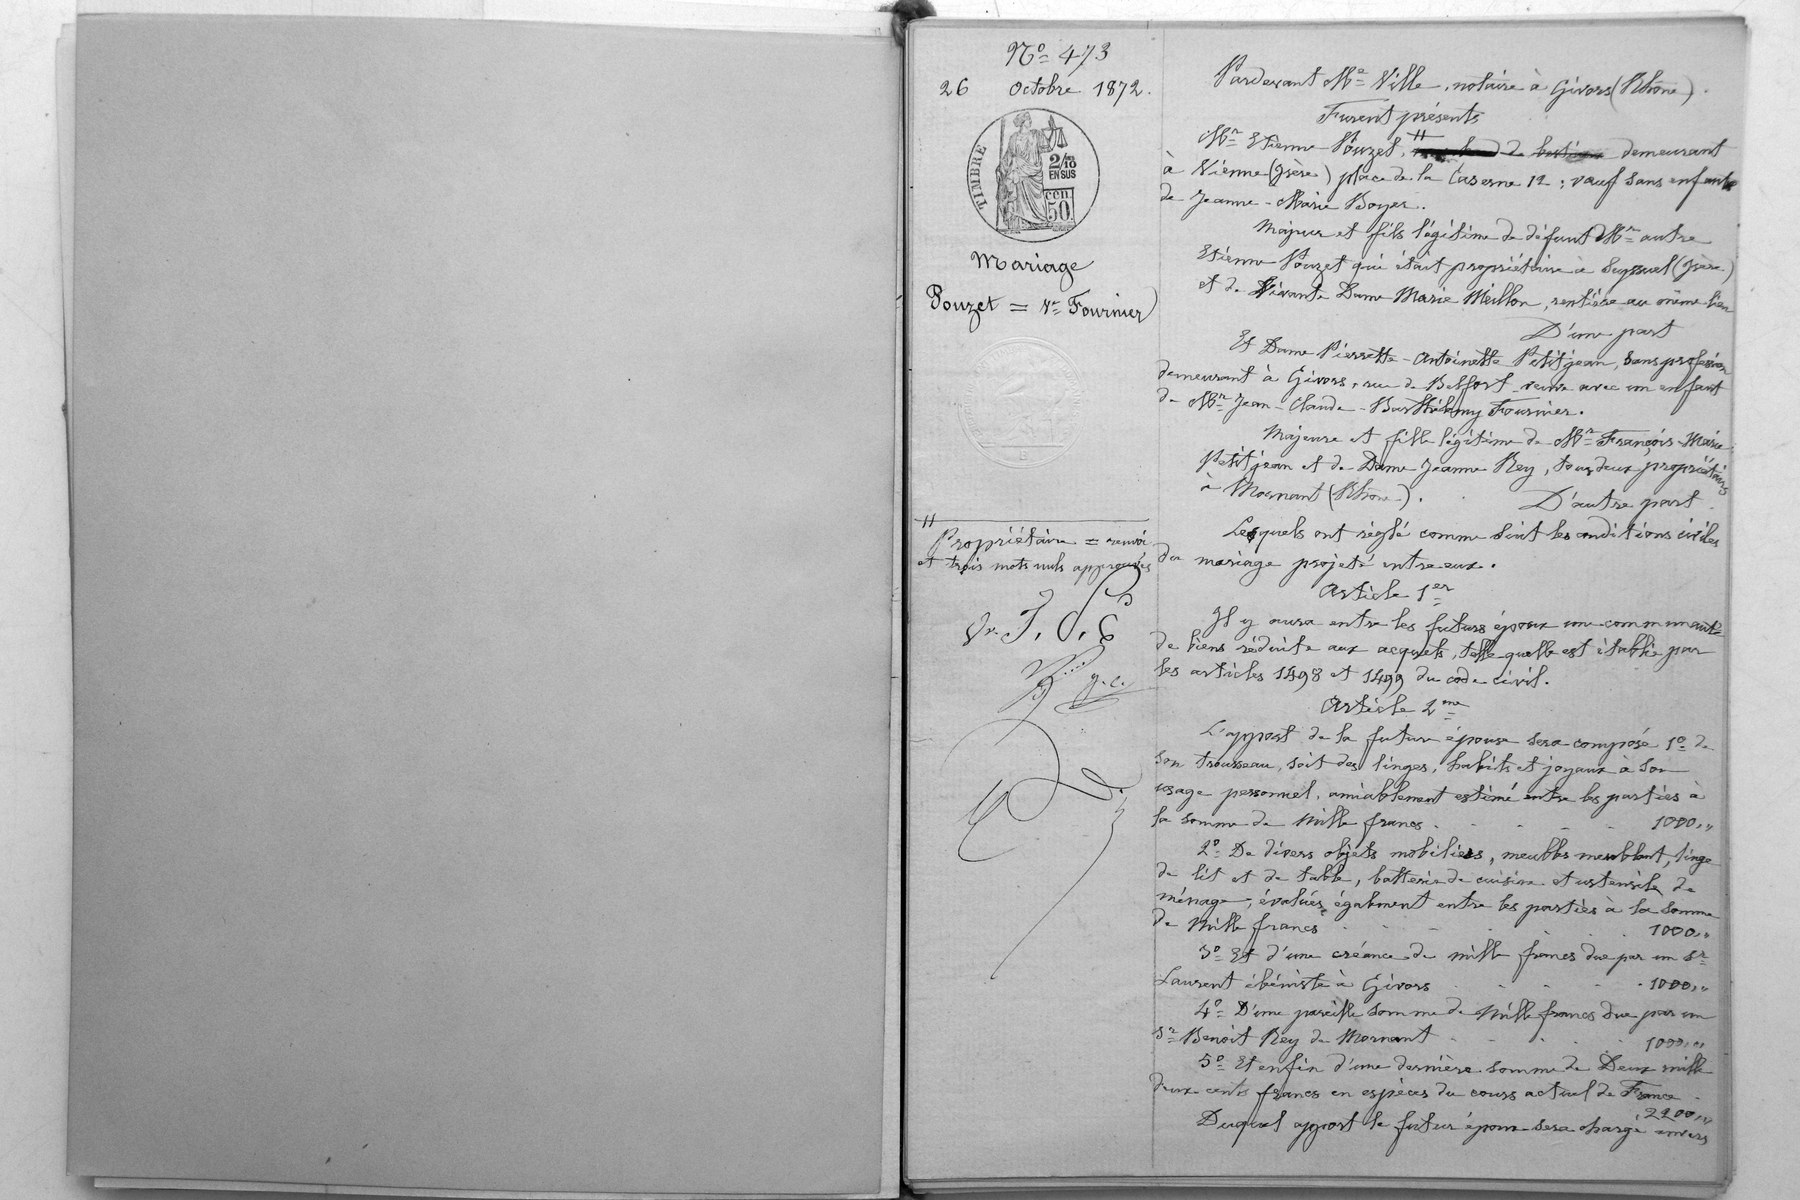 Nº 473
26 Octobre 1872.
TIMBRE
2/10
EN SUS
cen
50
Mariage
Pouzet = Ve Fournier
Propriétaire = renvoi
et trois mots nuls approuvés
Pardevant Me Ville, notaire à Givors (Rhône).
Furent présents
Mr Etienne Pouzet, demeurant
à Vienne (Isère) place de la Caserne 12 ; veuf sans enfants
de Jeanne-Marie Boyer.
Majeur et fils légitime de défunt Mr autre
Etienne Pouzet qui était propriétaire à Seyssuel (Isère)
et de vivante Dame Marie Meillon, rentière au même lieu
D'une part
Et Dame Pierrette-Antoinette Petitjean, sans profession
demeurant à Givors, rue de Belfort, veuve avec un enfant
de Mr Jean-Claude-Barthélemy Fournier.
Majeure et fille légitime de Mr François-Marie
Petitjean et de Dame Jeanne Rey, tous deux propriétaires
à Mornant (Rhône). D'autre part
Lesquels ont réglé comme suit les conditions civiles
du mariage projeté entre eux.
Article 1er
Il y aura entre les futurs époux une communauté
de biens réduite aux acquets, telle quelle est établie par
les articles 1498 et 1499 du code civil.
Article 2me
L'apport de la future épouse sera composé 1º de
son trousseau, soit des linges, habits et joyaux à son
usage personnel, amiablement estimé entre les parties à
la somme de Mille francs 1000,,
2º De divers objets mobiliers, meubles meublant, linge
de lit et de table, batterie de cuisine et ustensile de
ménage, évalués également entre les parties à la somme
de Mille francs 1000,,
3º Et d'une créance de mille francs due par un Sr
Laurent ébéniste à Givors 1000,,
4º D'une pareille somme de Mille francs due par un
Sr Benoit Rey de Mornant 1000,,
5º Et enfin d'une dernière somme de Deux mille
deux cents francs en espèces du cours actuel de France
2200,,
Duquel apport le futur époux sera chargé envers